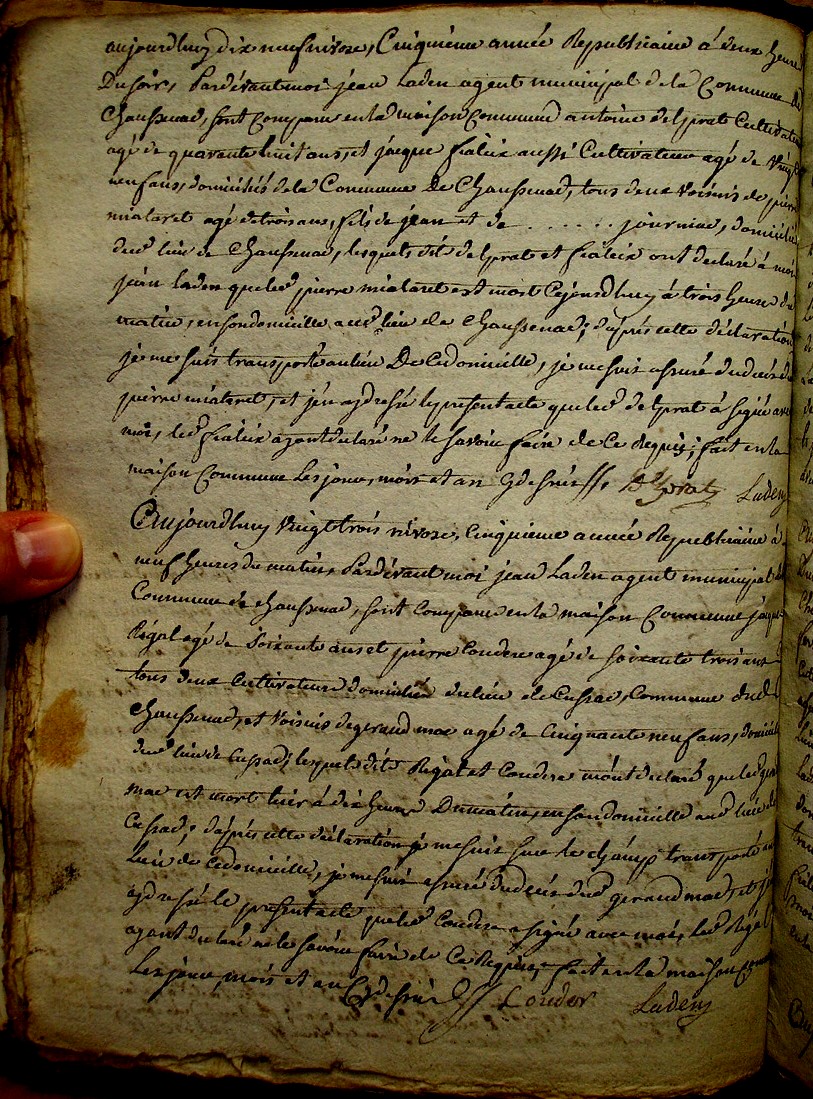 aujourdhuy dix neuf nivose, Cinquieme année Republicaine à deux heures
Du soir, Pardevant moi jean Laden agent municipal de la Commune de
Chaussenac, sont Comparus en la maison Commune antoine delprat Cultivateur
agé de quarante huit ans, et jacque fialeix aussi Cultivateur agé de vingt
neuf ans, domiciliés de la Commune de Chaussenac, tous deux voisins de pierre
mialaret agé de trois ans, fils de jean et de . . . . . . journiac, domicilié
dud. lieu de Chaussenac, lesquels dits delprat et fialeix ont declaré à moi
jean Laden que led. pierre mialaret est mort Cejourdhuy à trois heures du
matin, en son domicille aud. lieu de Chaussenac; d'après cette déclaration
je me suis transporté au lieu De Ce domicille, je me suis assuré du decès de
pierre mialaret, et j'en ay dressé le present acte que led. delprat à signé avec
moi, led. fialeix ayant declaré ne le savoir faire de Ce Requis; fait en la
maison Commune les jour, mois et an q. dessus
Delprat Laden
Aujourdhuy vingt trois nivose, Cinquieme année Republicaine à
neuf heures du matin, Pardevant moi jean Laden agent municipal de
Commune de Chaussenac, sont Comparus en la maison Commune jacque
Régal agé de Soixante ans et pierre Couderc agé de soixante trois ans
tous deux Cultivateurs domiciliés du lieu de Cussac, Commune dud.
Chaussenac, et voisins de geraud mac agé de Cinquante neuf ans, domicilié
dud. lieu de Cussac; lesquels dits Régal et Couderc m'ont declaré que led. geraud
mac est mort hier à dix heures Du matin, en son domicille aud. lieu de
Cussac; d'après cette déclaration je me suis sur le champ transporté au
Lieu de Ce domicille, je me suis assuré du decès dud. geraud mac, et j'en
ay dressé le present acte que led. Couderc a signé avec moi, led. Regal
ayant declaré ne le savoir faire de Ce Requis; fait en la maison Commune
Les jour, mois et an q. dessus
Couder Laden